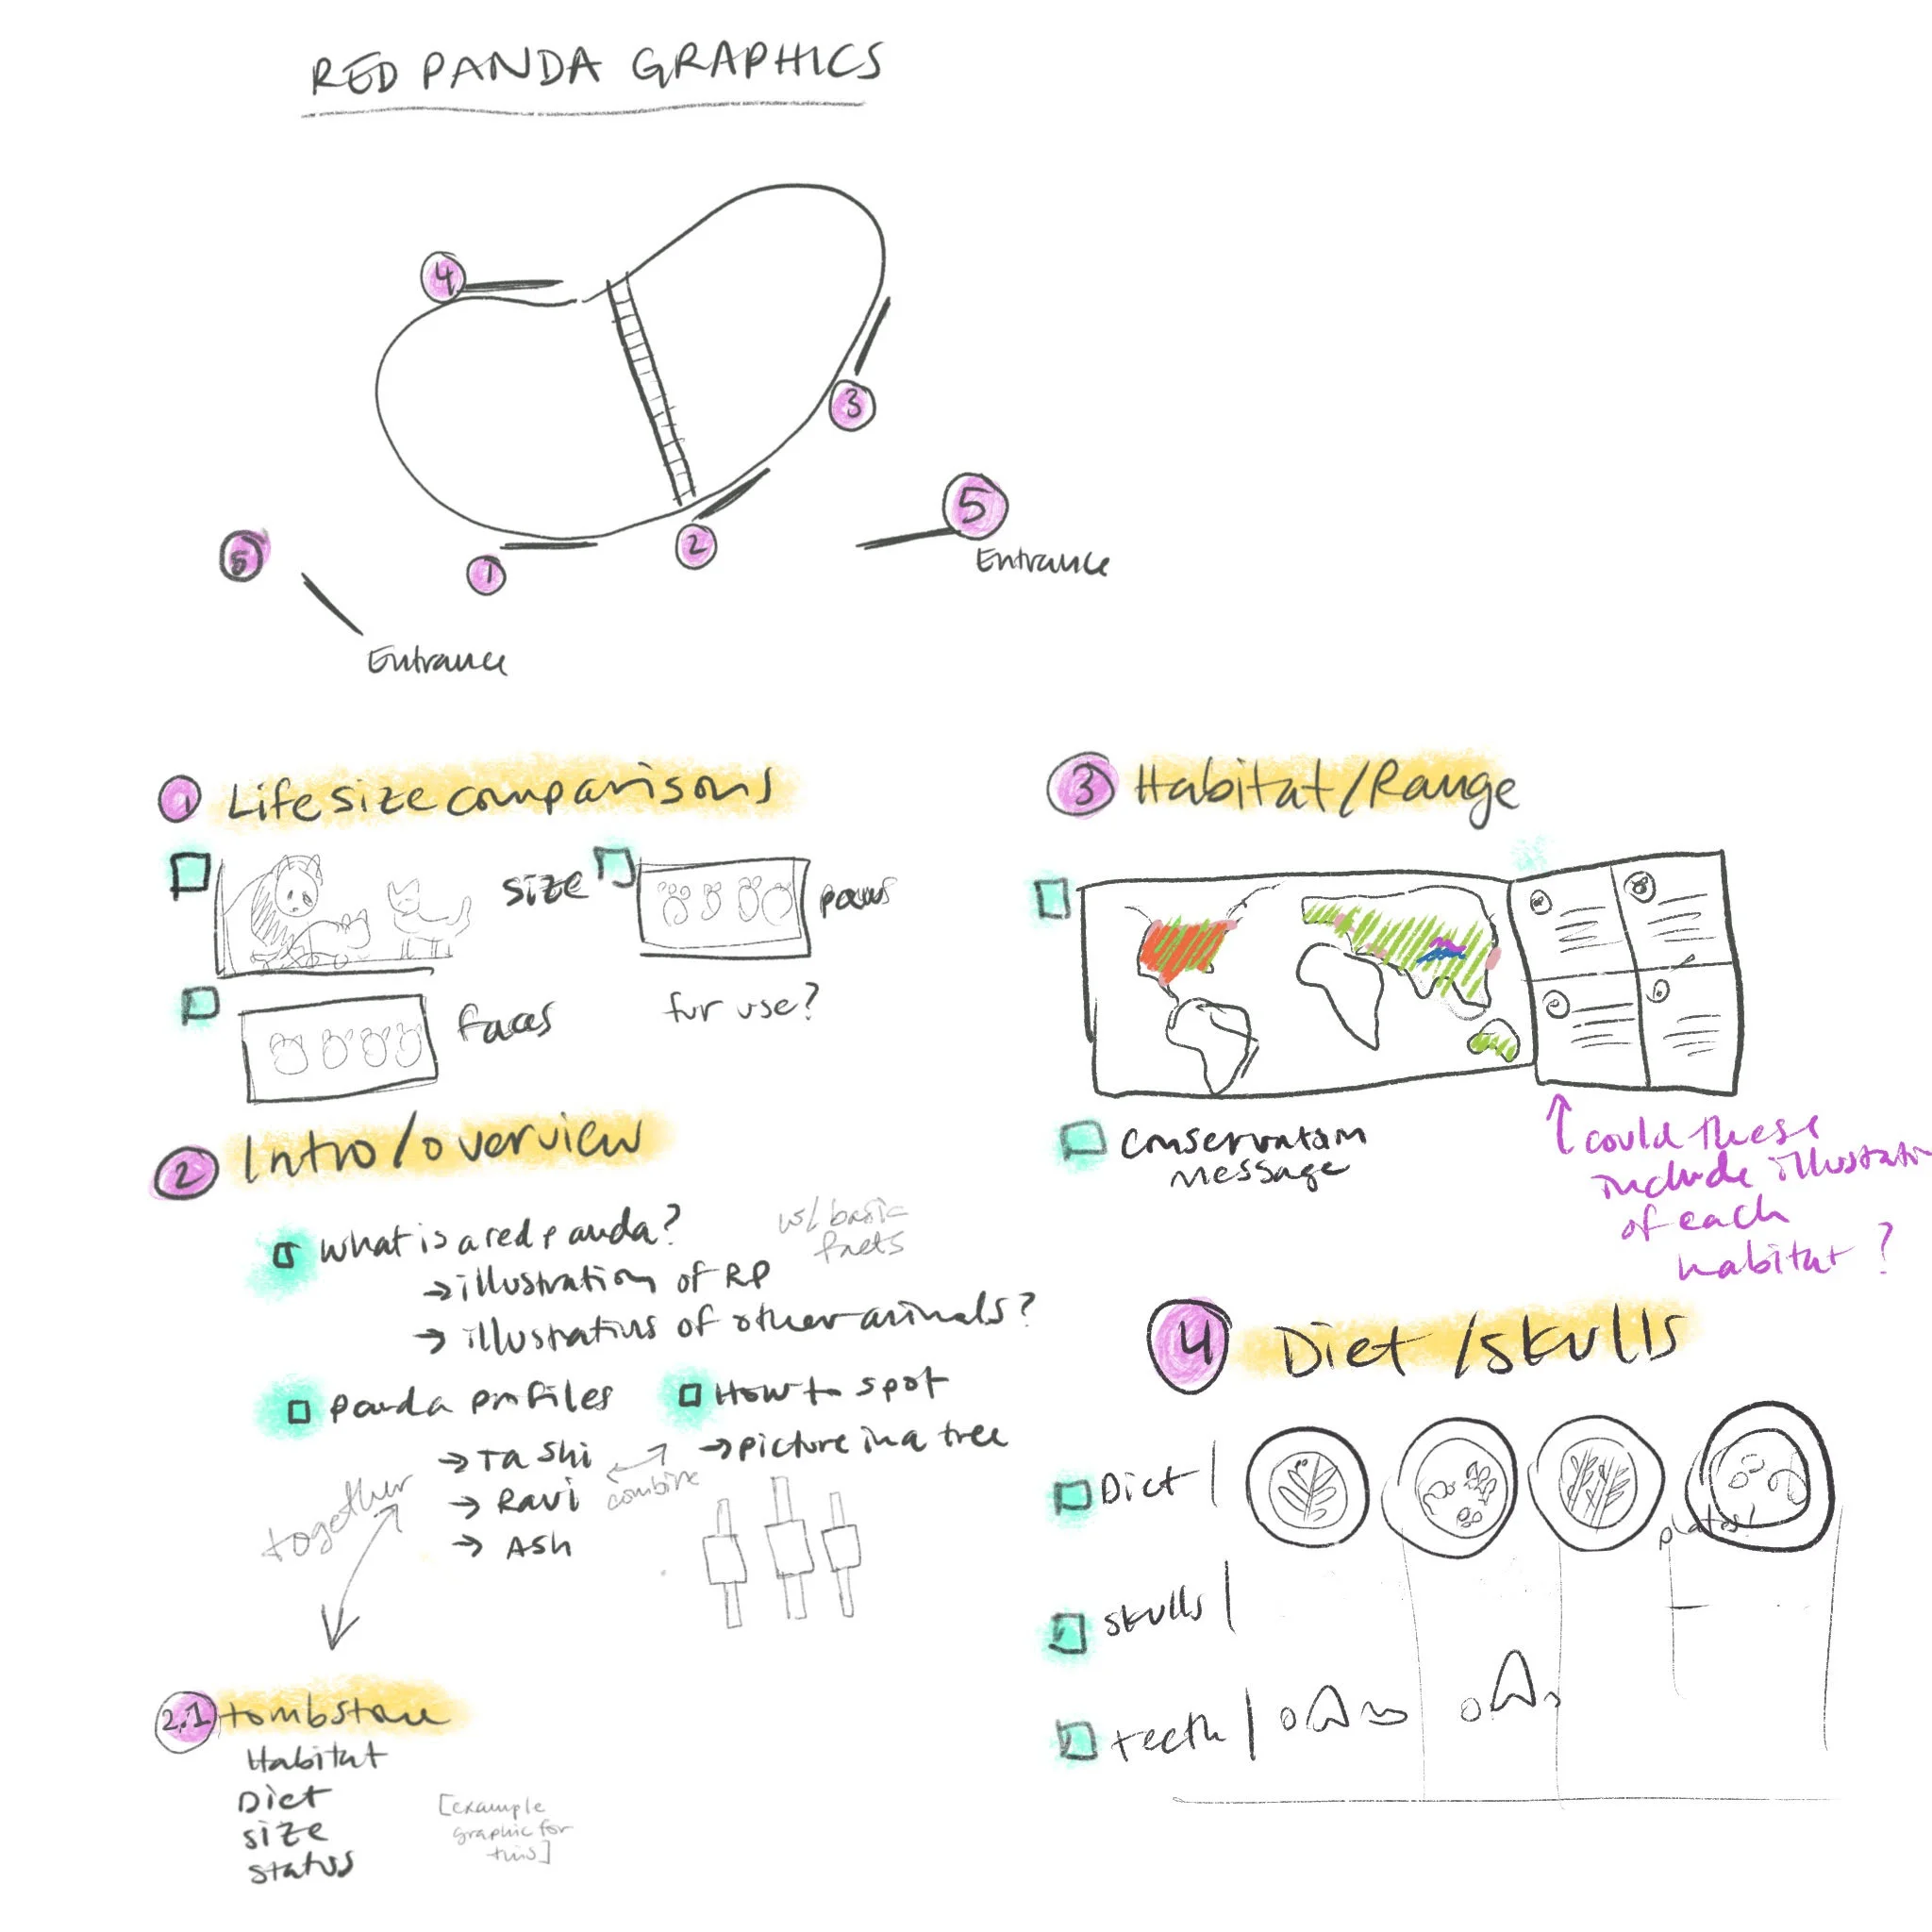 RED PANDA GRAPHICS
4
3
5
Entrance
2
1
Entrance
1 Life size comparisons
size
paws
faces
fur use?
2 Intro/overview
What is a red panda?
w/ basic
facts
→ illustration of RP
→ illustrations of other animals?
panda profiles
→ Tashi
→ Ravi
→ Ash
combine
together
How to spot
→ picture in a tree
2.1 tombstone
Habitat
Diet
size
status
[example
graphic for
this]
3 Habitat/Range
conservation
message
↑ could these
include illustration
of each
habitat?
4 Diet/skulls
Diet |
plates!
skulls |
teeth |